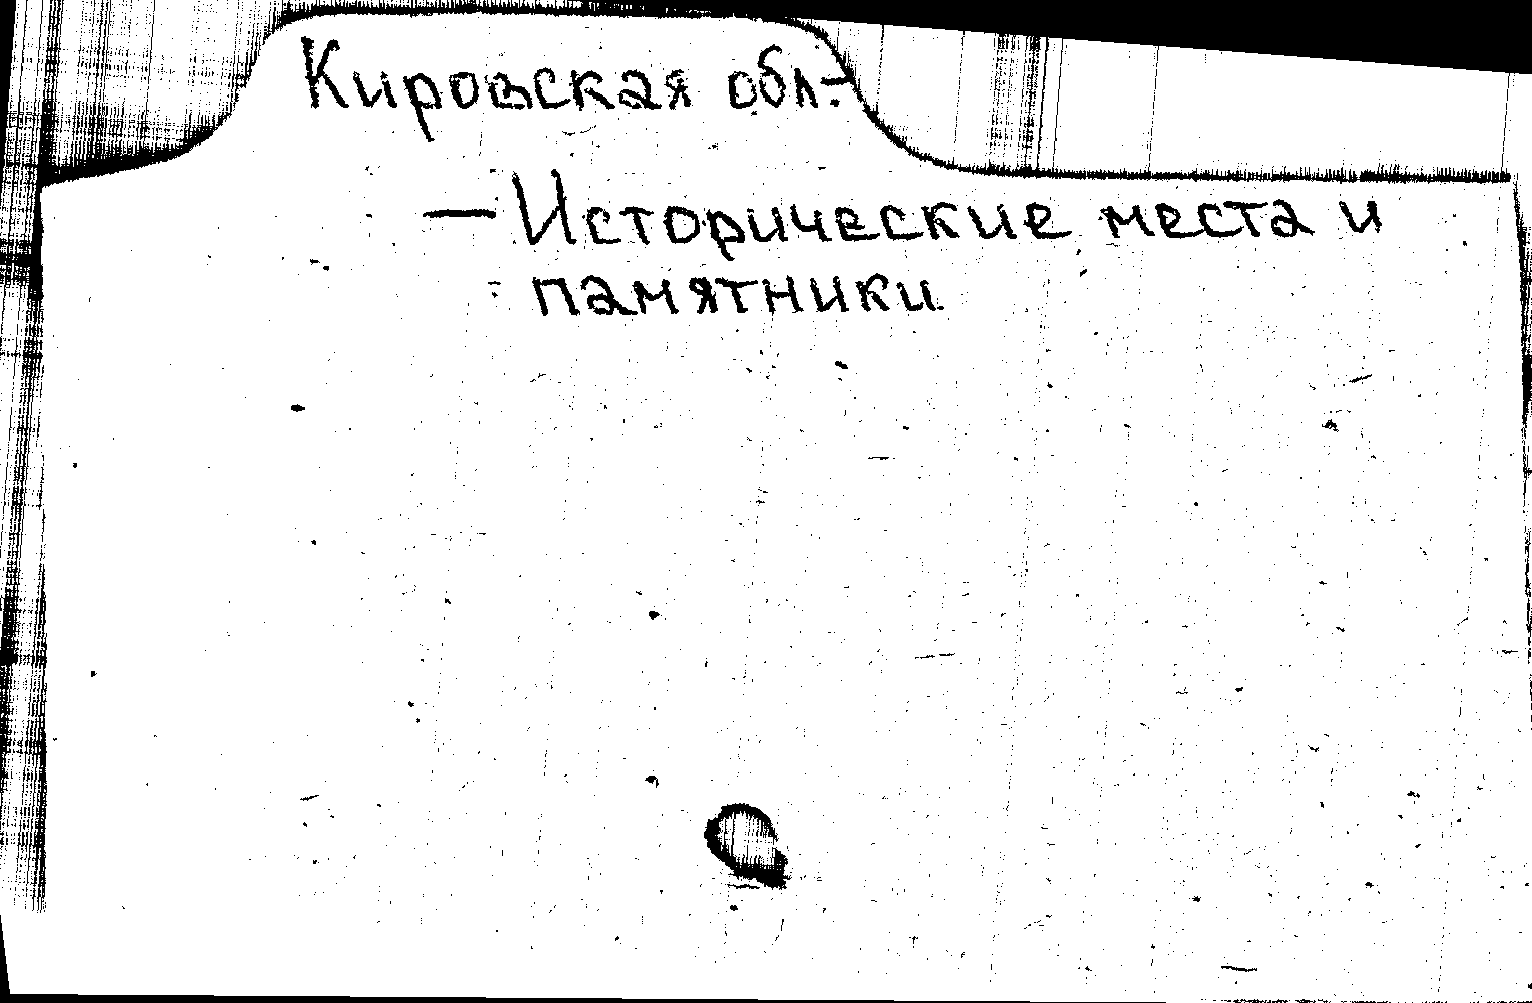 Кировская обл.-
— Исторические места и
памятники